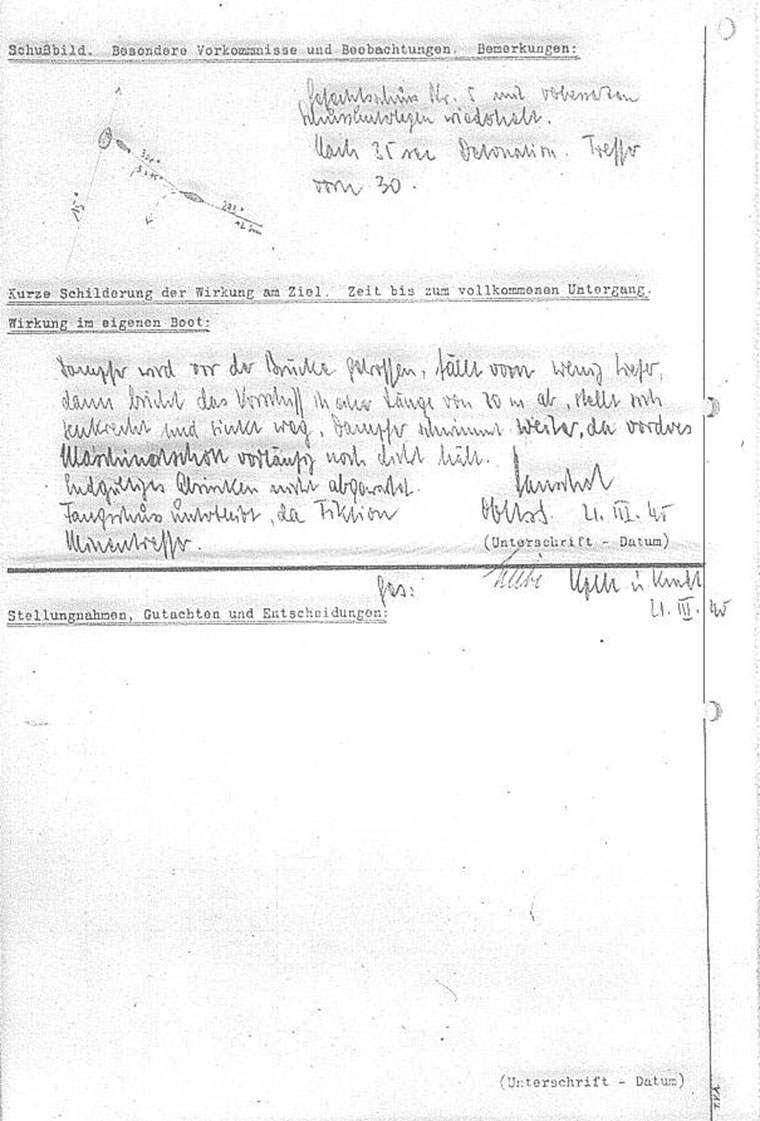 Schußbild. Besondere Vorkommnisse und Beobachtungen. Bemerkungen:
Gefechtsschuss Nr. 5 mit verbesserten
Schussunterlagen wiederholt.
Nach 35 sec Detonation. Treffer
vorn 30.
Kurze Schilderung der Wirkung am Ziel. Zeit bis zum vollkommenen Untergang.
Wirkung im eigenen Boot:
Dampfer wird vor der Brücke getroffen, fällt vorn wenig tiefer,
dann bricht das Vorschiff in einer Länge von 20 m ab, stellt sich
senkrecht und sinkt weg. Dampfer schwimmt weiter, da vorderes
Maschinenschott vorläufig noch dicht hält.
Endgültiges Absinken nicht abgewartet.
Fangschuss unterbleibt, da Fiktion
Oblt.z.S. 21.III.45
Minentreffer.
(Unterschrift - Datum)
Ges: Kptlt. u. Kmdt
21.III.45
Stellungnahmen, Gutachten und Entscheidungen:
(Unterschrift - Datum)